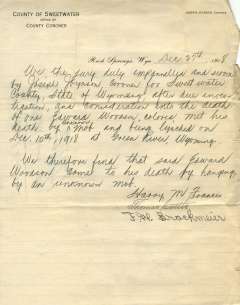 COUNTY OF SWEETWATER
OFFICE OF
COUNTY CORONER
Rock Springs, Wyo Dec 27th 1918
We, the jury duly empanelled and sworn
by Joseph Coroner for Sweetwater
County, State of Wyoming after due inves-
tigation, and consideration into the death
of one Edward Woodson, colored met his
death by a mob and being lynched on
Dec. 10th, 1918 at Green River, Wyoming.
We therefore find that said Edward
Woodson came to his death by hanging
by an unknown mob.
Harry M
J. H. Brockmeier